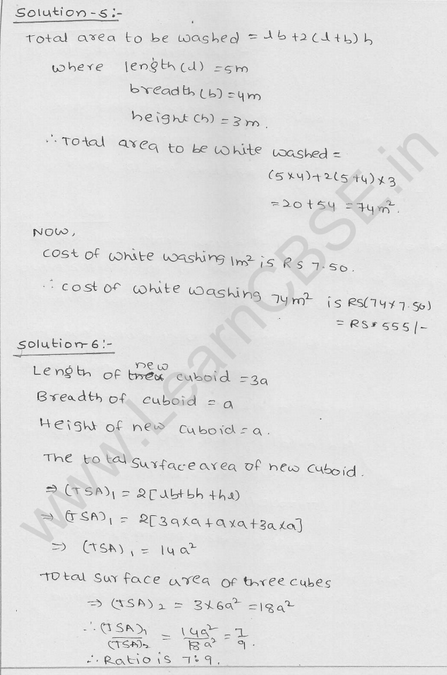 Solution-5:-
Total area to be washed = lb+2(l+b)h
where length(l) = 5m
breadth(b) = 4m
height(h) = 3m.
∴ Total area to be white washed =
(5×4)+2(5+4)×3
=20+54 = 74m².
Now,
cost of white washing 1m² is Rs 7.50.
∴ cost of white washing 74m² is RS(74×7.50)
= RS 555/-
Solution-6:-
Length of new cuboid = 3a
Breadth of cuboid = a
Height of new cuboid = a.
The total surface area of new cuboid.
⇒ (TSA)₁ = 2[lb+bh+hl]
⇒ (TSA)₁ = 2[3a×a+a×a+3a×a]
⇒ (TSA)₁ = 14a²
Total surface area of three cubes
⇒ (TSA)₂ = 3×6a² = 18a²
∴ (TSA)₁/(TSA)₂ = 14a²/18a² = 7/9.
∴ Ratio is 7:9.
www.LearnCBSE.in